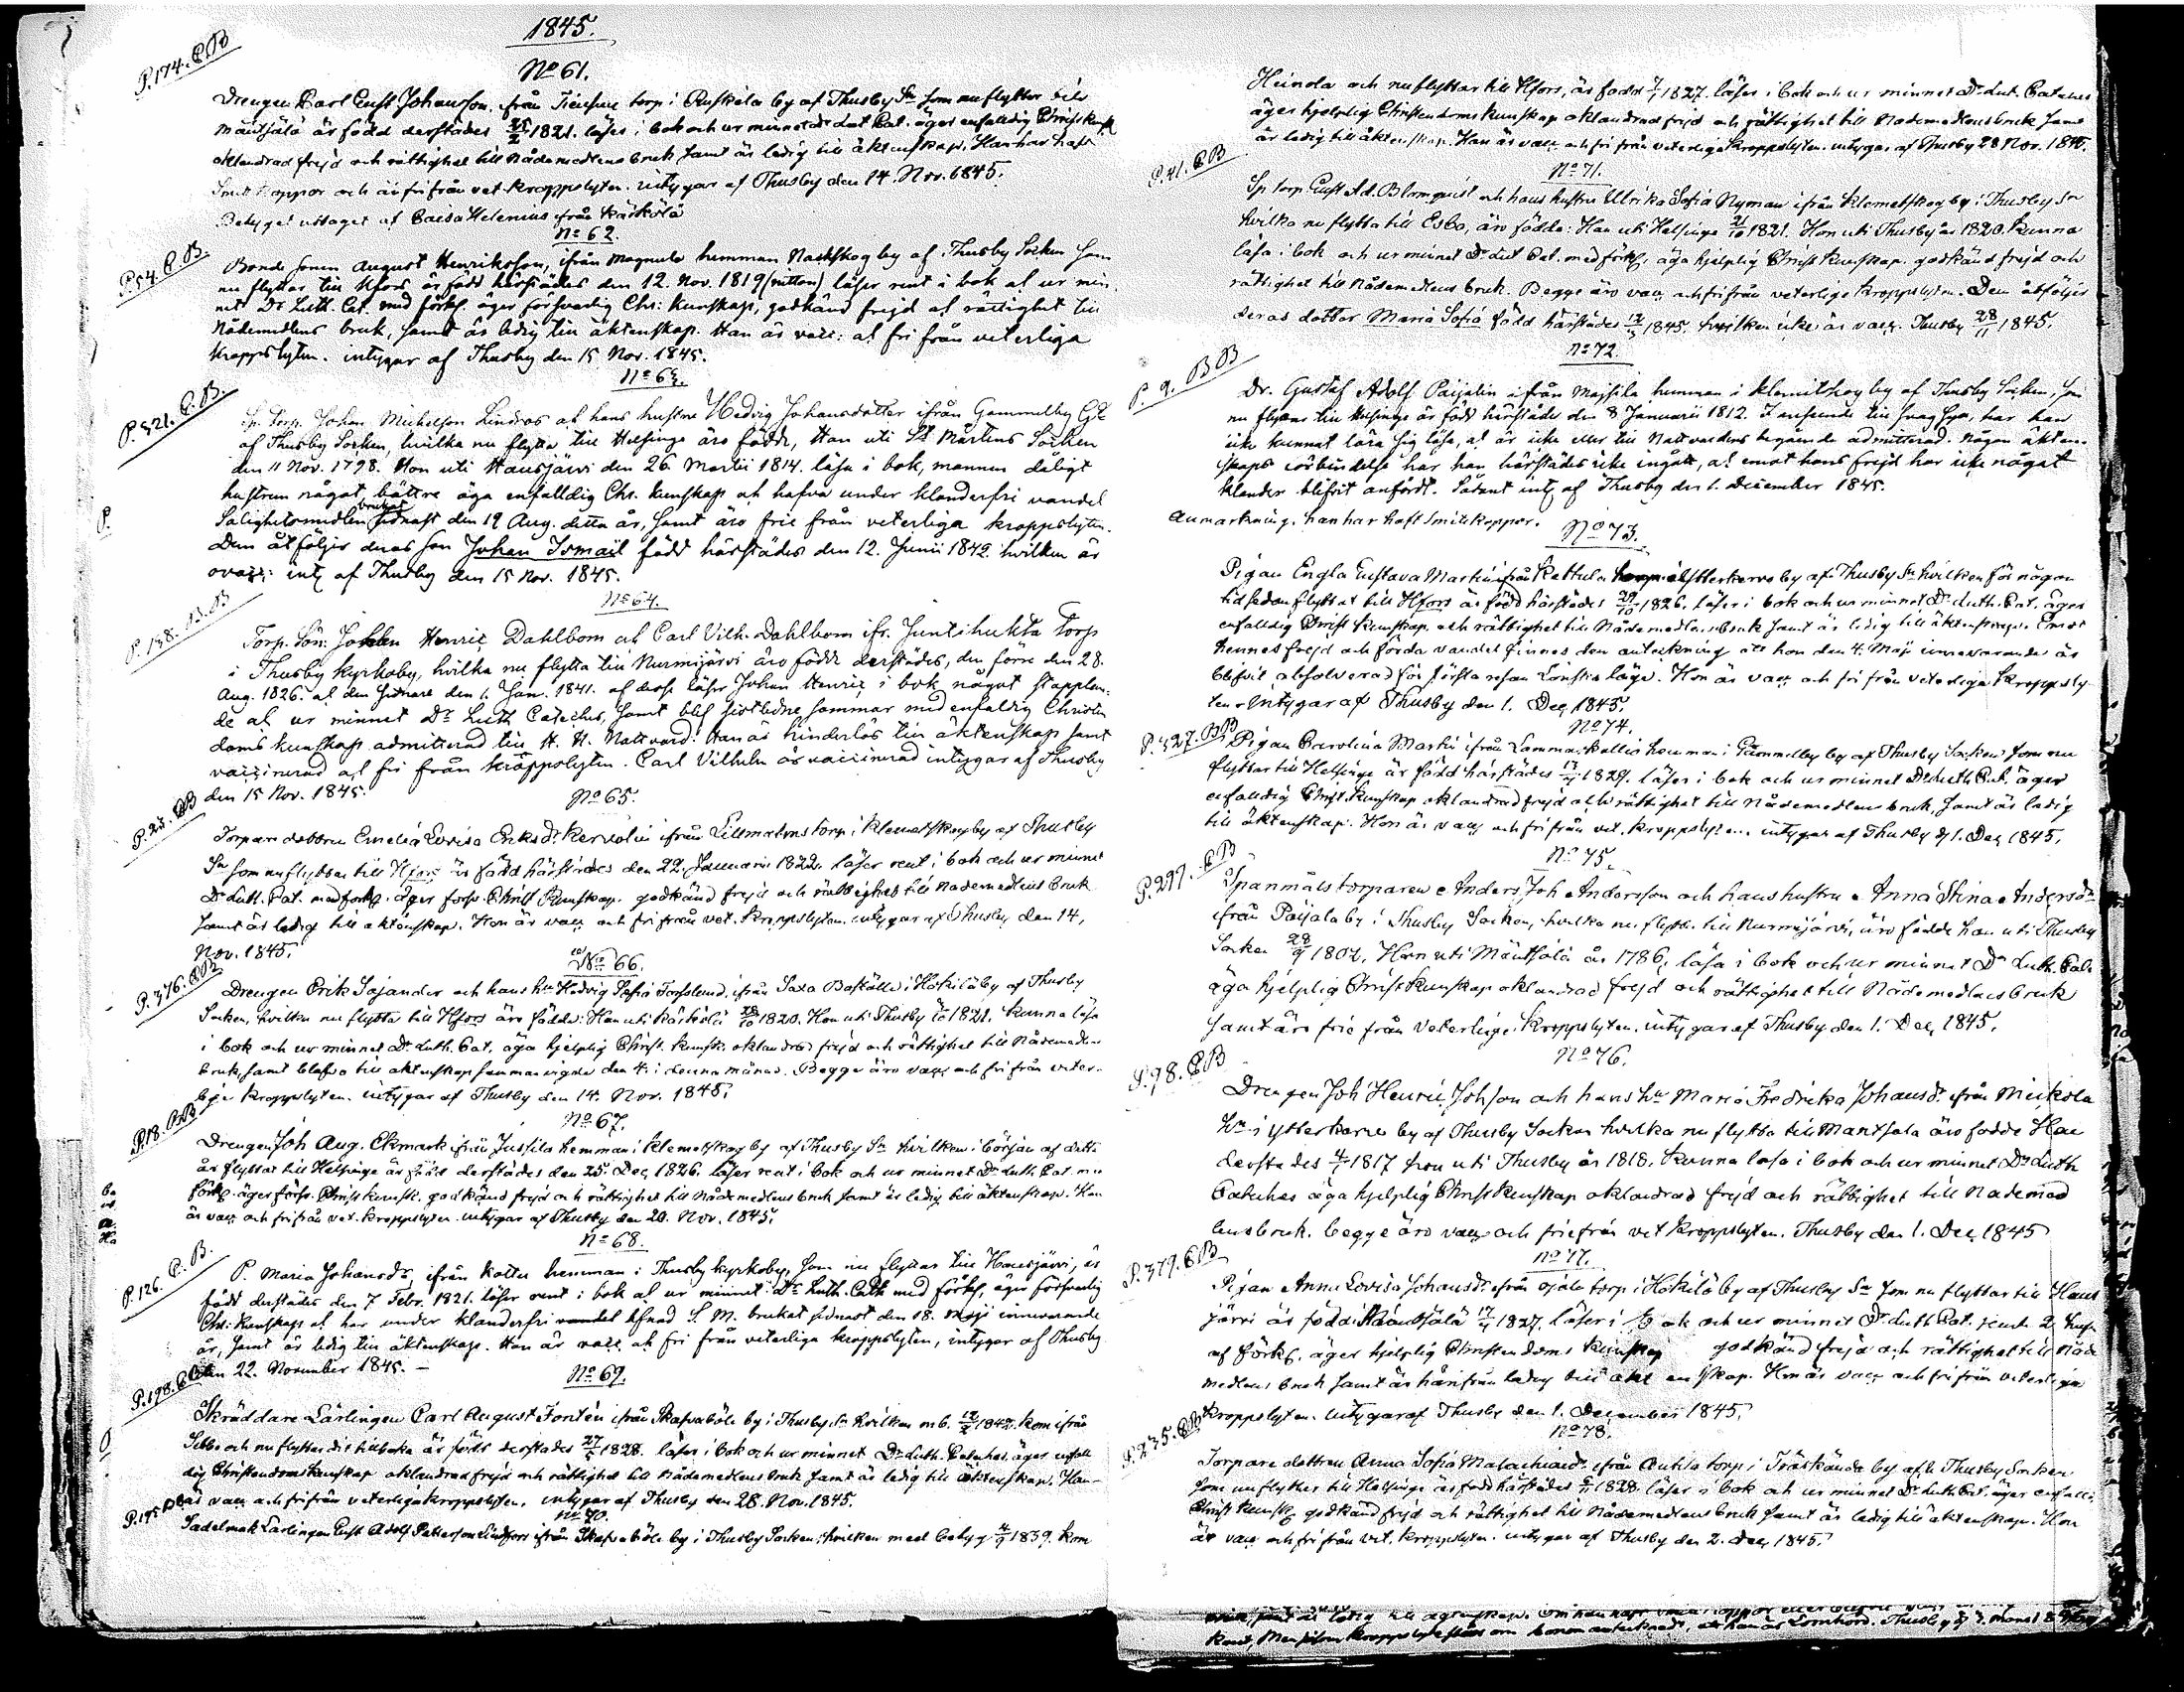 1845.
P. 174. C.B
No 61.
Drengen Carl Gust Johansson från torp i Ruskela by af Thusby Sn som nu flyttar till
Mäntsälä är född derstädes 25/2 1821. läser i bok och ur minnet Dr Lut Cat. äger enfalldig Christ kunsk
oklandrad frejd och rättighet till Nådemedlens bruk samt är ledig till äktenskap. Han har haft
Smittkoppor och är fri från vet. kroppslyten. intygar af Thusby den 14. Nov. 1845.
Betyget uttaget af Caisa Helenius från Kärkölä
P. 54. C.B.
No 62.
Bonde Sonen August Henriksson, ifrån Magnula hemman Nackskog by af Thusby Socken som
nu flyttar till Hfors är född härstädes den 12. Nov. 1819 (nitton) läser rent i bok at ur min
net Dr Luth. Cat. med förkl. äger försvarlig Chr: kunskap, godkänd frejd at rättighet till
Nådemedlens bruk, samt är ledig till äktenskap. Han är vacc: at fri från veterliga
kroppslyten. intygar af Thusby den 15 Nov. 1845.
P. 321. C.B.
No 63.
Sp. Torp. Johan Michelsson Lindros at hans hustru Hedvig Johansdotter ifrån Gammelby
af Thusby Socken, hvilka nu flytta till Helsinge äro födde, Han uti St Mårtens Socken
den 11 Nov. 1798. Hon uti Hausjärvi den 26. Martii 1814. läsa i bok, mannen dåligt
hustrun något bättre äga enfalldig Chr. kunskap at hafva under klanderfri vandel
P.
Salighetsmedlen brukat sednast den 19 Aug. detta år, samt äro frie från veterliga kroppslyten.
Dem åtföljer deras son Johan Ismaël född härstädes den 12. Junii 1842 hvilken är
ovacc: int af Thusby den 15 Nov. 1845.
P. 138. B.B
No 64.
Torp. Sön: Johan Henric Dahlbom at Carl Vilh. Dahlbom ifr. Juntihukta Torp
i Thusby kyrkoby, hvilka nu flytta till Nurmijärvi äro födde derstädes, den förre den 28.
Aug. 1826. at den sednare den 1. Jan. 1841. af dessa läser Johan Henric i bok något stapplan:
de at ur minnet Dr Luth Cateches, samt blef sistledne sommar med enfaldig Christen
doms kunskap admitterad till H. H. Nattvard: Han är hinderlös till äktenskap samt
vaccinerad at fri från kroppslyten. Carl Vilhelm är vaccinerad intygar af Thusby
den 15 Nov. 1845.
P. 25. B.B
No 65.
Torpare dottren Emelia Lovisa Eriksdr Kervolin ifrån Lillmalms torp i Klemetskog by af Thusby
Sn som nu flyttar till Hfors är född härstädes den 22. Januarii 1822. läser rent i bok och ur minnet
Dr Luth. Cat. med förkl. äger förs. Christ kunskap. godkänd frejd och rättighet till Nådemedlens bruk
samt är ledig till äktenskap. Hon är vacc och fri från vet. kroppslyten. intygar af Thusby den 14,
Nov. 1845.
P. 376. C.B
No 66.
Drengen Erik Sajander och hans hu Hedvig Sofia Forsslund, ifrån Saxa Baställe i Hökilä by af Thusby
Socken, hvilka nu flytta till Hfors äro födde: Han uti Kärkölä 28/10 1820. Hon uti Thusby 1821. kunna läsa
i bok och ur minnet Dr Luth. Cat. äga hjelplig Christ. kunsk. oklandrad frejd och rättighet till Nådemedlens
bruk, samt blefvo till äktenskap sammanvigde den 4. i denna månad. Begge äro vacc och fri från veter-
liga kroppslyten. intygar af Thusby den 14. Nov. 1845.
P. 18. B.B
No 67.
Drengen Joh Aug. Ekmark ifrån Jussila hemman i Klemetskog by af Thusby Sn hvilken i början af detta
år flyttat till Helsinge är född derstädes den 25. Dec 1826. läser rent i bok och ur minnet Dr Luth. Cat. me
förkl. äger förs. Christ kunsk. godkänd frejd och rättighet till Nådemedlens bruk samt är ledig till äktenskap. Han
är vacc och fri från vet. kroppslyten. intygar af Thusby den 20. Nov. 1845.
P. 126. C.B.
No 68.
P. Maria Johansdr, ifrån Kotta hemman i Thusby kyrkoby, som nu flyttar till Hausjärvi, är
född derstädes den 7 Febr. 1821. läser rent i bok at ur minnet Dr Luth. Cath med förkl, äger försvarlig
Chr: Kunskap at har under klanderfri vandel S. M. brukat sednast den 18. Maji innevarande
år, samt är ledig till äktenskap. Hon är vacc. at fri från veterliga kroppslyten, intygar af Thusby
den 22. November 1845. —
P. 198. C.B
No 69.
Skräddare Lärlingen Carl August Fontén ifrån Skafvaböle by i Thusby Sn hvilken m b. 1842. kom ifrån
Sibbo och nu flyttar dit tillbaka är född derstädes 27/5 1828. läser i bok och ur minnet Dr Luth. Cateches. äger enfall
dig Christendomskunskap oklandrad frejd och rättighet till Nådemedlens bruk samt är ledig till äktenskap. Han
är vacc och fri från veterliga kroppslyten. intygar af Thusby den 28. Nov. 1845.
P. 195
No 70.
Sadelmak Lärlingen Gust Adolf Pettersson Lindfors ifrån Skafvaböle by i Thusby Socken, hvilken med betyg 4/9 1839. kom
Heinola och nu flyttar till Hfors, är född 1827. läser i bok och ur minnet Dr. Lut. Cateches
äger hjelplig Christendoms kunskap oklandrad frejd och rättighet till Nådemedlens bruk samt
är ledig till äktenskap. Han är vacc och fri från veterliga kroppslyten. intygar af Thusby 28 Nov. 1845.
P. 41. C.B
No 71.
Sp. torp. Gust Ad. Blomquist och hans hustru Ulrika Sofia Nyman ifrån Klemetskog by i Thusby Sn
hvilka nu flytta till Esbo, äro födda: Han uti Helsinge 21/10 1821. Hon uti Thusby år 1820. kunna
läsa i bok och ur minnet Dr Lut Cat. med förkl. äga hjelplig Christ kunskap. godkänd frejd och
rättighet till Nådemedlens bruk. Begge äro vacc och fri från veterlige kroppslyten. Dem åtföljer
deras dotter Maria Sofia född härstädes 1845. hvilken icke är vacc. Thusby 28/11 1845.
P. 9. B B
No 72.
Dr. Gustaf Adolf Päijelin ifrån Majsila hemman i Klemetskog by af Thusby Socken, som
nu flyttar till Helsinge är född härstädes den 8 Januarii 1812. I anseende till svag syn, har han
icke kunnat lära sig läsa, at är icke eller till Nattvardens begående admitterad. någon äkten-
skaps förbindelse har han härstädes icke ingått, at emot hans frejd har icke något
klander blifvit anfördt. Sådant int af Thusby den 1. December 1845.
Anmärkning. han har haft Smittkoppor.
No 73.
Pigan Engla Gustava Martin ifrån Kettula torp i Ytterkervo by af Thusby Sn hvilken för någon
tid sedan flyttat till Hfors är född härstädes 29/10 1826. läser i bok och ur minnet Dr Luth. Cat. äger
enfalldig Christ kunskap och rättighet till Nådemedlens bruk samt är ledig till äktenskap. Emot
Hennes frejd och förda vandel finnes den anteckning att hon den 4. Maji innevarande år
blifvit absolverad för första resan Lönska läge. Hon är vacc och fri från veterliga kroppsly-
ten. Intygar af Thusby den 1. Dec 1845.
P. 327. B.B
No 74.
Pigan Carolina Martin ifrån hemman i Gammelby by af Thusby Socken som nu
flyttar till Helsinge är född härstädes 1829. läser i bok och ur minnet Dr Luth Cat. äger
enfalldig Christ. kunskap oklandrad frejd och rättighet till Nådemedlens bruk, samt är ledig
till äktenskap. Hon är vacc och fri från vet. kroppslyten. intygar af Thusby d 1. Dec 1845.
P. 297. C.B
No 75.
Spanmåls torparen Anders Joh Andersson och hans hustru Anna Stina Andersdr
ifrån Päijala by i Thusby Socken, hvilka nu flytta till Nurmijärvi, äro födde han uti Thusby
Socken 28/9 1802, Hon uti Mäntsälä år 1786, läsa i bok och ur minnet Dr Luth. Cat.
äga hjelplig Christ kunskap oklandrad frejd och rättighet till Nådemedlens bruk
samt äro frie från veterlige kroppslyten. intygar af Thusby den 1. Dec 1845.
P. 98. C.B
No 76.
Drengen Joh Henric Johsson och hans hu Maria Fredrika Johansdr. ifrån Meikola
hn i Ytterkervo by af Thusby Socken hvilka nu flytta till Mäntsälä äro födde Han
derstädes 1817 hon uti Thusby år 1818. kunna läsa i bok och ur minnet Dr Luth
Cateches äga hjelplig Christ kunskap oklandrad frejd och rättighet till Nådemed
lens bruk. begge äro vacc och frie från vet kroppslyten. Thusby den 1. Dec 1845
P. 379. C.B
No 77.
Pigan Anna Lovisa Johansdr. ifrån Ojala torp i Hökilä by af Thusby Sn som nu flyttar till Haus
järvi är född i Mäntsälä 1827. läser i bok och ur minnet Dr Luth Cat. jemte 2
af förkl. äger hjelplig Christendoms kunskap godkänd frejd och rättighet till Nåde
medlens bruk samt är härifrån ledig till äktenskap. Hon är vacc och fri från veterliga
kroppslyten. Intygar af Thusby den 1. December 1845.
P. 235. C.B
No 78.
Torpare dottren Anna Sofia Malachiaedr. ifrån Anttila torp i Träskända by af Thusby Socken
som nu flyttar till Helsinge är född härstädes 1828. läser i bok och ur minnet Dr Luth Cat. äger enfalld.
Christ kunsk godkänd frejd och rättighet till Nådemedlens bruk samt är ledig till äktenskap. Hon
är vacc och fri från vet. kroppslyten. intygar af Thusby den 2. Dec 1845.